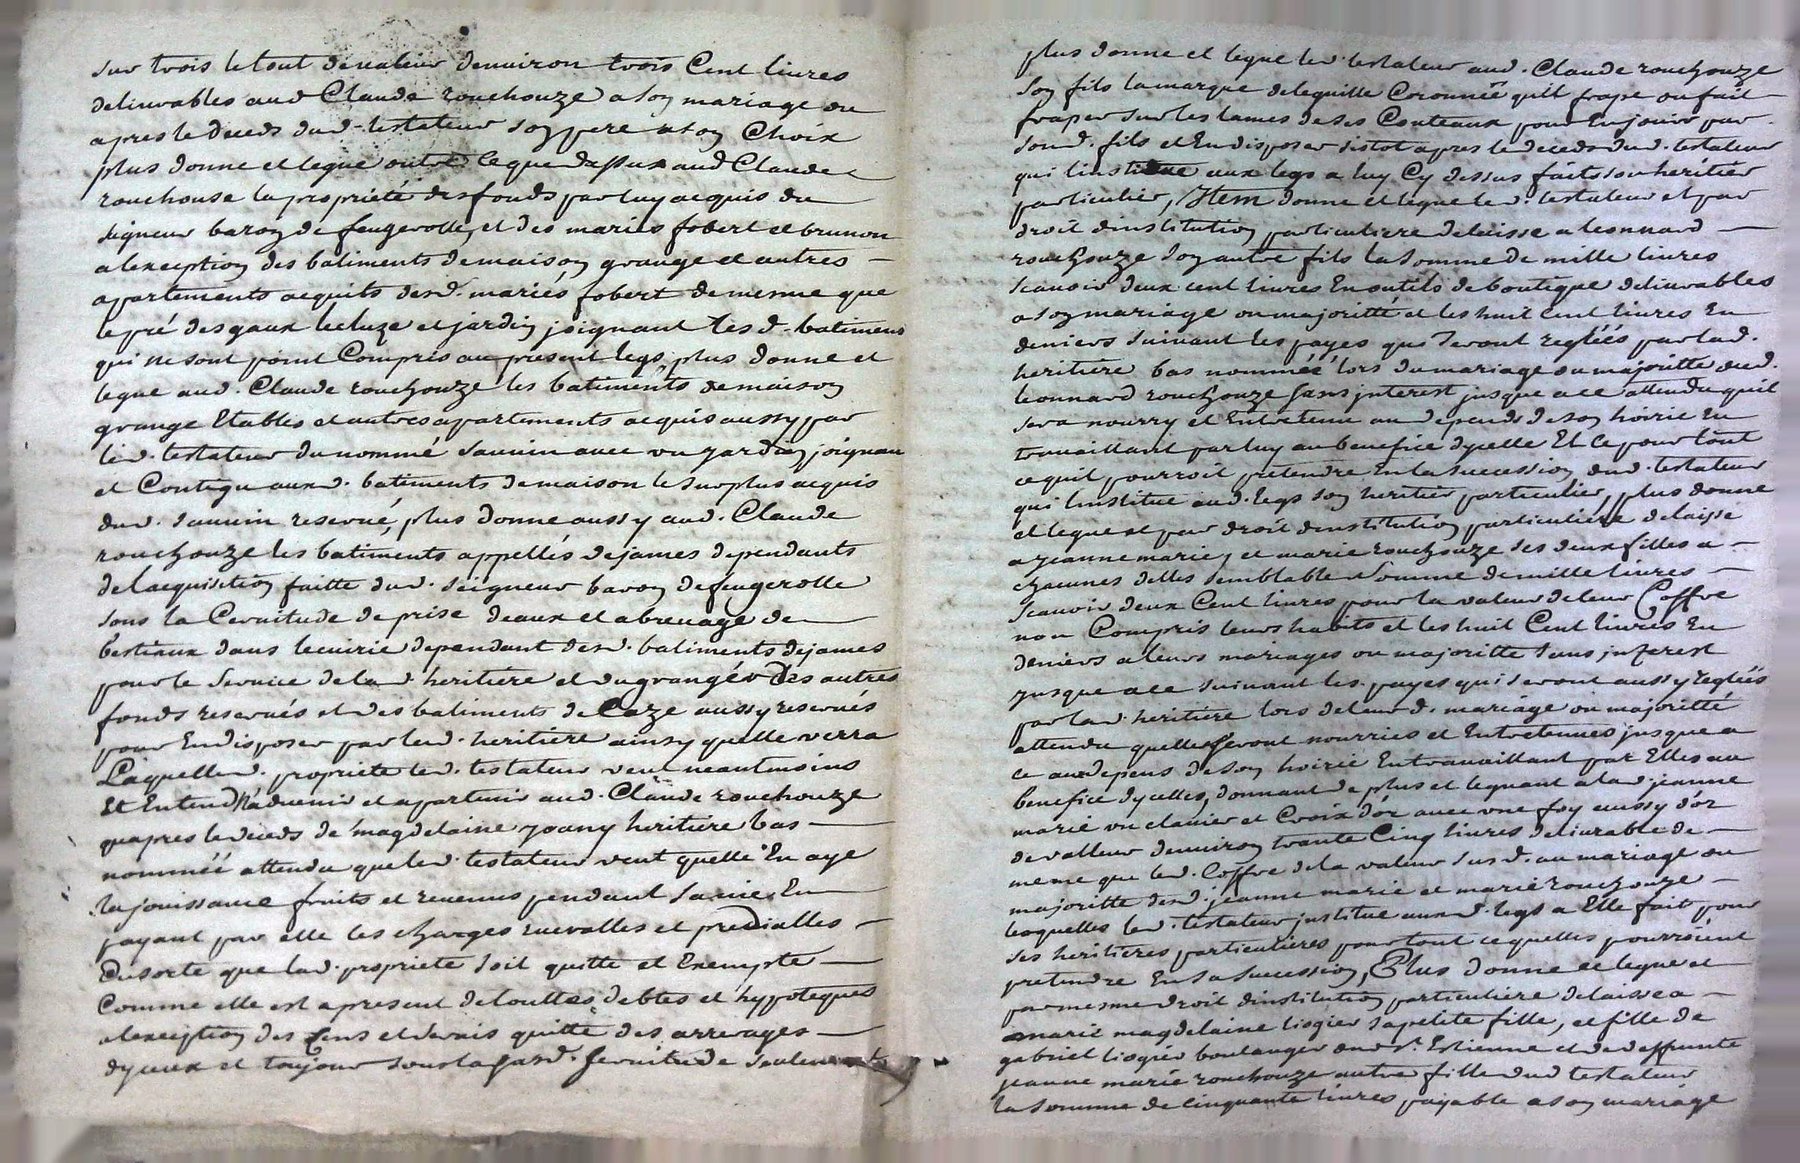 sur trois le tout de valleur denviron trois Cent livres
delivrables aud Claude rouchouze a son mariage ou
apres le deceds dud. testateur son pere a son Choix
plus donne et legue outre ce que dessus aud Claude
rouchouse la propriété des fonds par luy acquis du
seigneur baron de feugerolle, et des mariés fobert et brunon
a lexception des batiments de maison grange et autres
apartements acquits desd. mariés fobert de mesme que
le pré des gaux lecluze et jardin joignant lesd. batimens
qui ne sont point Compris au present legs, plus donne et
legue aud. Claude rouchouze les batiments de maison
grange Etables et autres apartements acquis aussy par
led. testateur du nommé sauvin avec un jardin joignau
et Contigu auxd. batiments de maison le surplus acquis
dud. sauvin reservé, plus donne aussy aud. Claude
rouchouze les batiments appellés dejames dependants
de lacquisition faitte dud. seigneur baron de feugerolle
sous la Cervitude de prise deaux et abreuage de
bestiaux dans lecuirie dependant desd. batiments dejames
pour le service de lad. héritiére et du grangér des autres
fonds reservés et des batiments de Caze aussy reservés
pour En disposer par lad. heritiére ainsy quelle verra
Laquelle d. propriete led. testateur veut neantmoins
Et Entend advenir et apartenir aud. Claude rouchouze
quapres le deceds de magdelaine jouny heritiére bas
nommée attendu que led. testateur veut quelle En aye
la jouissance fruits et revenus pendant sa vie En
payant par elle les charges annuelles et predialles
Ensorte que lad. propriete soit quitte et Exempte
Comme elle est a present de touttes debtes et hypoteques
a lexception des Cens et servis quitte des arrerages
dyceux et toujour sous la susd. servitude seulement
plus donne et legue led. testateur aud. Claude rouchouze
son fils la marque de leguille Coronnée quil frape ou fait
fraper sur les lames de ses Couteaux pour En jouir par
sond. fils et En disposer sistot apres le deceds dud. testateur
qui linstitue aux legs a luy Cy dessus faits son heritier
particulier, Item donne et legue led. testateur et par
droit dinstitution particuliere delaisse a leonnard
rouchouze son autre fils la somme de mille livres
scavoir deux cent livres En outils de boutique delivrables
a son mariage ou majoritté et les huit cent livres En
deniers suivant les payes qui seront reglées par lad.
heritiére bas nommée lors du mariage ou majoritte dud.
leonnard rouchouze sans jnterest jusque a ce attendu quil
sera nourry et Entretenu au depends de son hoirie En
travaillant par luy au benefice dycelle Et ce pour tout
ce quil pourroit pretendre En la succession dud. testateur
qui linstitue aud. legs son heritier particulier, plus donne
et legue et par droit dinstitution particuliére delaisse
a jeanne marie, et marie rouchouze ses deux filles a
chacunes delles semblable somme de mille livres
scavoir deux Cent livres pour la valeur de leur Coffre
non Compris leurs habits et les huit Cent livres En
deniers a leurs mariages ou majoritte sans jnterest
jusque a ce suivant les payes qui seront aussy reglées
par lad. heritiére lors de leurd. mariage ou majoritté
attendu quelles seront nourries et Entretenues jusque a
ce aux depens de son hoirie En travaillant par Elles au
benefice dycelles, donnant de plus et leguant a lad. jeanne
marie un clavier et Croix dor avec une foy aussy dor
de valleur denviron trante Cinq livres delivrable de
meme que led. Coffre de la valeur susd. au mariage ou
majoritte desd. jeanne marie et marie rouchouze
lesquelles led. testateur justitue auxd. legs a Elle fait pour
ses heritiéres particuliéres pour tout ce quelles pourroient
pretendre En sa succession, Plus donne et legue et
par mesme droit dinstitution particuliére delaisse a
marie magdelaine liogier sa petite fille, et fille de
gabriel liogier boulanger aud. St. Estienne et de deffunte
jeanne marie rouchouze autre fille dud testateur
la somme de cinquante livres payable a son mariage